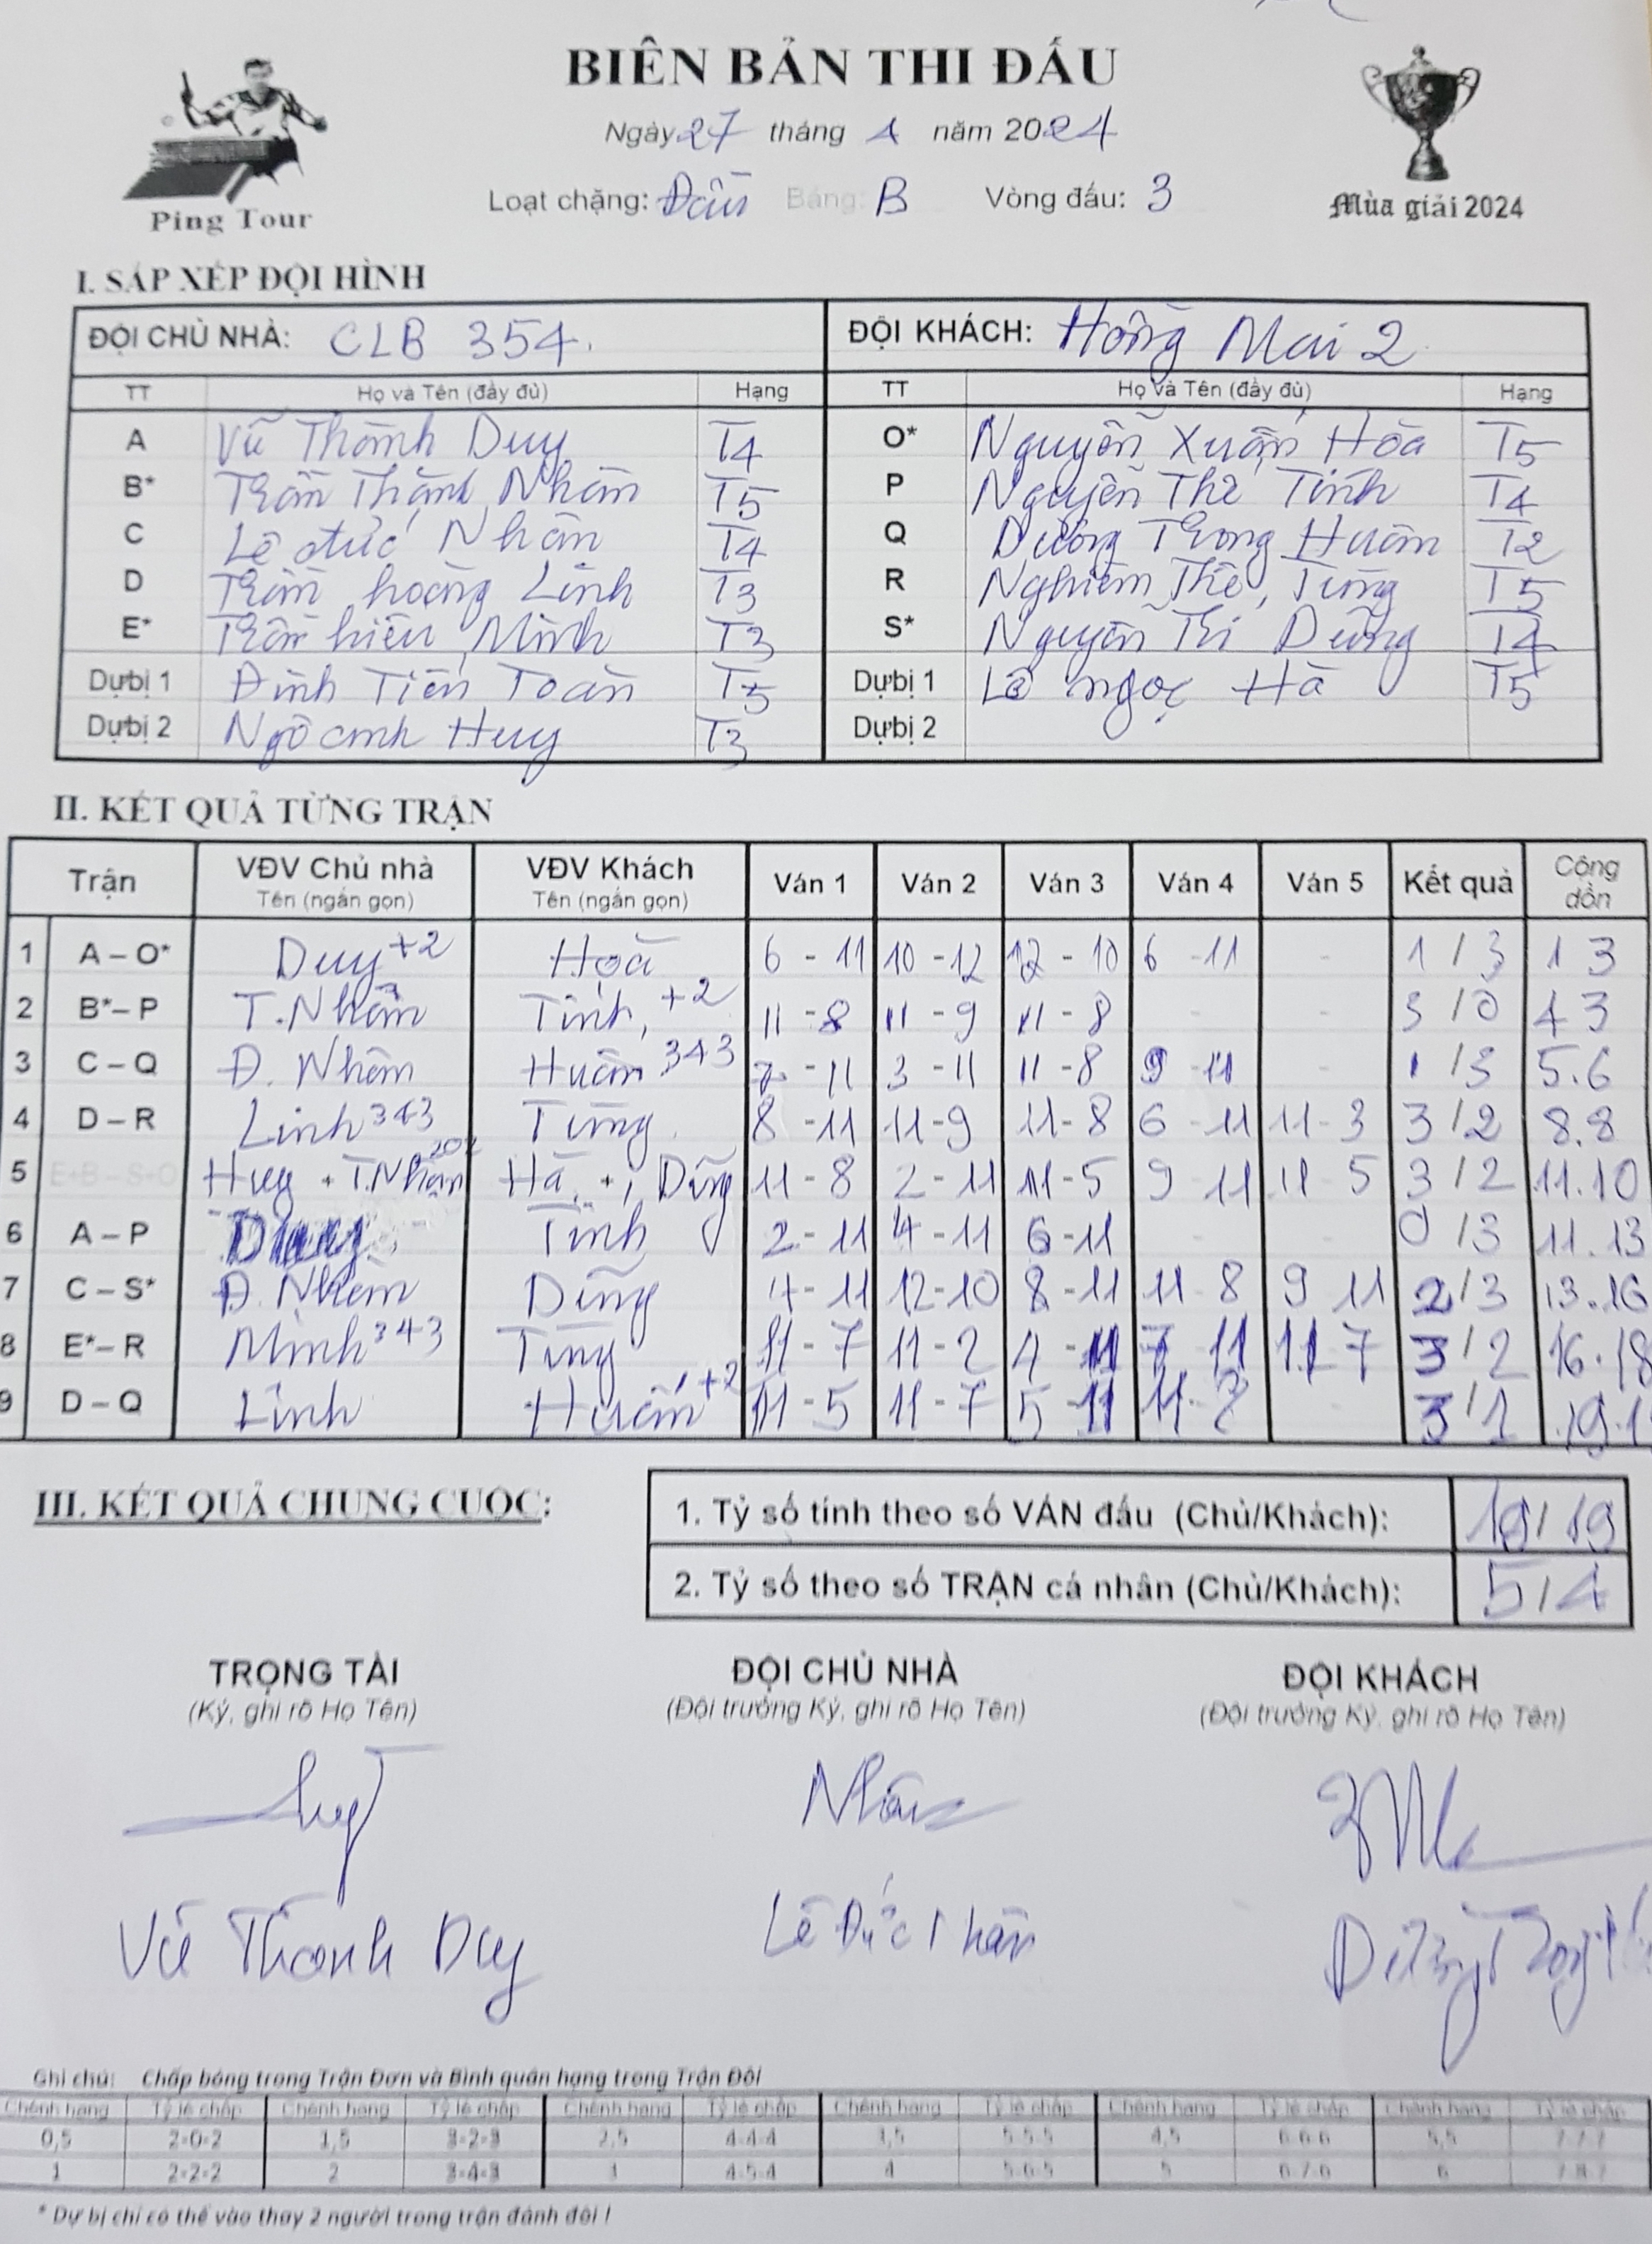 BIÊN BẢN THI ĐẤU
Ngày 27 tháng 4 năm 2024
Loạt chặng: Đầu Bảng: B Vòng đấu: 3
Ping Tour
Mùa giải 2024
I. SẮP XẾP ĐỘI HÌNH
ĐỘI CHỦ NHÀ: CLB 354. ĐỘI KHÁCH: Hồng Mai 2
TT Họ và Tên (đầy đủ) Hạng TT Họ và Tên (đầy đủ) Hạng
A Vũ Thành Duy T4 O* Nguyễn Xuân Hòa T5
B* Trần Thành Nhân T5 P Nguyễn Thế Tính T4
C Lê đức Nhân T4 Q Dương Trọng Huấn T2
D Trần hoàng Linh T3 R Nghiêm Thế Tùng T5
E* Trần hiếu Minh T3 S* Nguyễn Trí Dũng T4
Dự bị 1 Đinh Tiến Toàn T5 Dự bị 1 Lê ngọc Hà T5
Dự bị 2 Ngô anh Huy T3 Dự bị 2
II. KẾT QUẢ TỪNG TRẬN
Trận VĐV Chủ nhà Tên (ngắn gọn) VĐV Khách Tên (ngắn gọn) Ván 1 Ván 2 Ván 3 Ván 4 Ván 5 Kết quả Cộng dồn
1 A – O* Duy +2 Hoà 6 - 11 10 - 12 12 - 10 6 - 11 - 1 / 3 1 3
2 B* – P T.Nhân Tính, +2 11 - 8 11 - 9 11 - 8 - - 3 / 0 4 3
3 C – Q Đ. Nhân Huấn 343 7 - 11 3 - 11 11 - 8 9 - 11 - 1 / 3 5.6
4 D – R Linh 343 Tùng 8 - 11 11 - 9 11 - 8 6 - 11 11 - 3 3 / 2 8.8
5 E+B – S+O Huy + T.Nhân 202 Hà + Dũng 11 - 8 2 - 11 11 - 5 9 - 11 11 - 5 3 / 2 11.10
6 A – P Duy Tính 2 - 11 4 - 11 6 - 11 - - 0 / 3 11.13
7 C – S* Đ. Nhân Dũng 4 - 11 12 - 10 8 - 11 11 - 8 9 - 11 2 / 3 13.16
8 E* – R Minh 343 Tùng 11 - 7 11 - 2 4 - 11 7 - 11 11 - 7 3 / 2 16.18
9 D – Q Linh Huấn +2 11 - 5 11 - 7 5 - 11 11 - - 3 / 1 19.1
III. KẾT QUẢ CHUNG CUỘC:
1. Tỷ số tính theo số VÁN đấu (Chủ/Khách): 19 / 19
2. Tỷ số theo số TRẬN cá nhân (Chủ/Khách): 5 / 4
TRỌNG TÀI ĐỘI CHỦ NHÀ ĐỘI KHÁCH
(Ký, ghi rõ Họ Tên) (Đội trưởng Ký, ghi rõ Họ Tên) (Đội trưởng Ký, ghi rõ Họ Tên)
Nhân
Vũ Thành Duy Lê Đức Nhân Dương Trọng
Ghi chú: Chấp bóng trong Trận Đơn và Bình quân hạng trong Trận Đôi
Chênh hạng Tỷ lệ chấp Chênh hạng Tỷ lệ chấp Chênh hạng Tỷ lệ chấp Chênh hạng Tỷ lệ chấp Chênh hạng Tỷ lệ chấp Chênh hạng Tỷ lệ chấp
0,5 2-0-2 1,5 3-2-3 2,5 4-4-4 3,5 5-5-5 4,5 6-6-6 5,5 7-7-7
1 2-2-2 2 3-4-3 3 4-5-4 4 5-6-5 5 6-7-6 6 7-8-7
* Dự bị chỉ có thể vào thay 2 người trong trận đánh đôi !